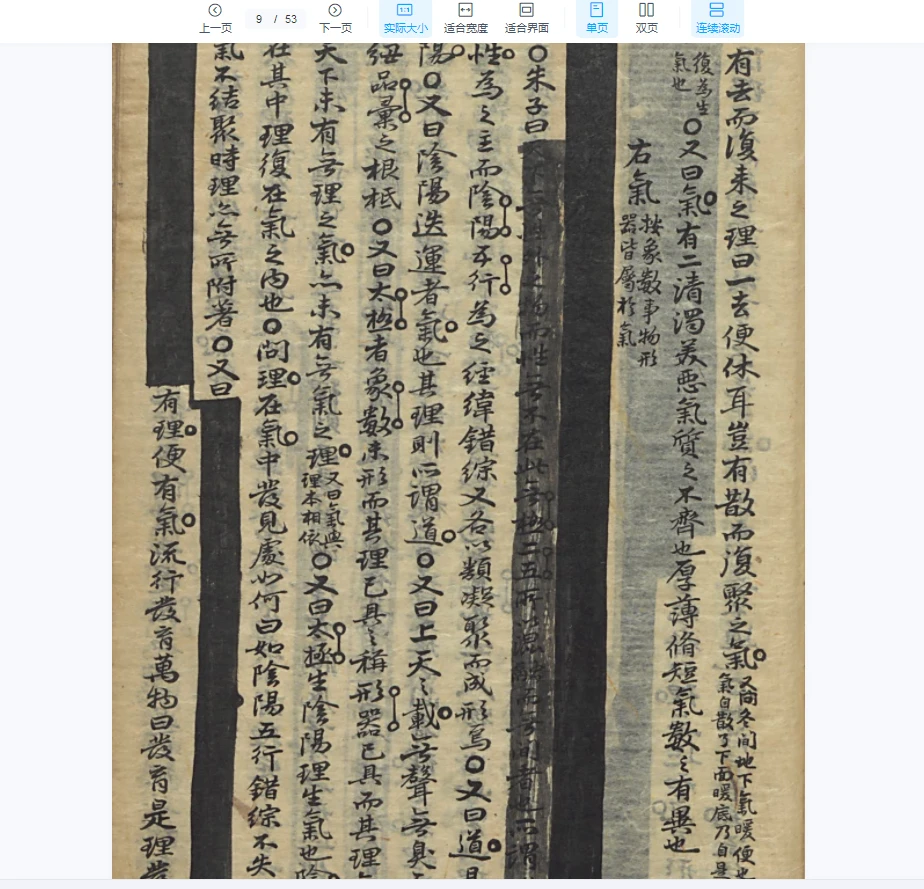 上一页
9 / 53
下一页
实际大小
适合宽度
适合界面
单页
双页
连续滚动
有去而復来之理曰一去便休耳豈有散而復聚之氣
又問冬间地下氣暖便也
氣自散了下面暖底乃自是
復為生
氣也
○又曰氣有二清濁美恶氣質之不齊也厚薄脩短氣數之有異也
右氣
按象數事物形
器皆屬於氣
○朱子曰天下無性外之物而性無不在此無極二五所以混融而无间者也所謂
性為之主而陰陽五行為之經緯錯綜又各以類凝聚而成形焉○又曰道
陽○又曰陰陽迭運者氣也其理則所謂道○又曰上天之載无聲無臭
品彙之根柢○又曰太極者象數未形而其理已具之稱形器已具而其理
天下未有无理之氣亦未有无氣之理
又曰氣與
理本相依
○又曰太極生陰陽理生氣也陰
在其中理復在氣之内也○问理在氣中發見處如何曰如陰陽五行錯綜不失
氣不结聚時理亦无所附著○又曰
有理便有氣流行發育萬物曰發育是理發